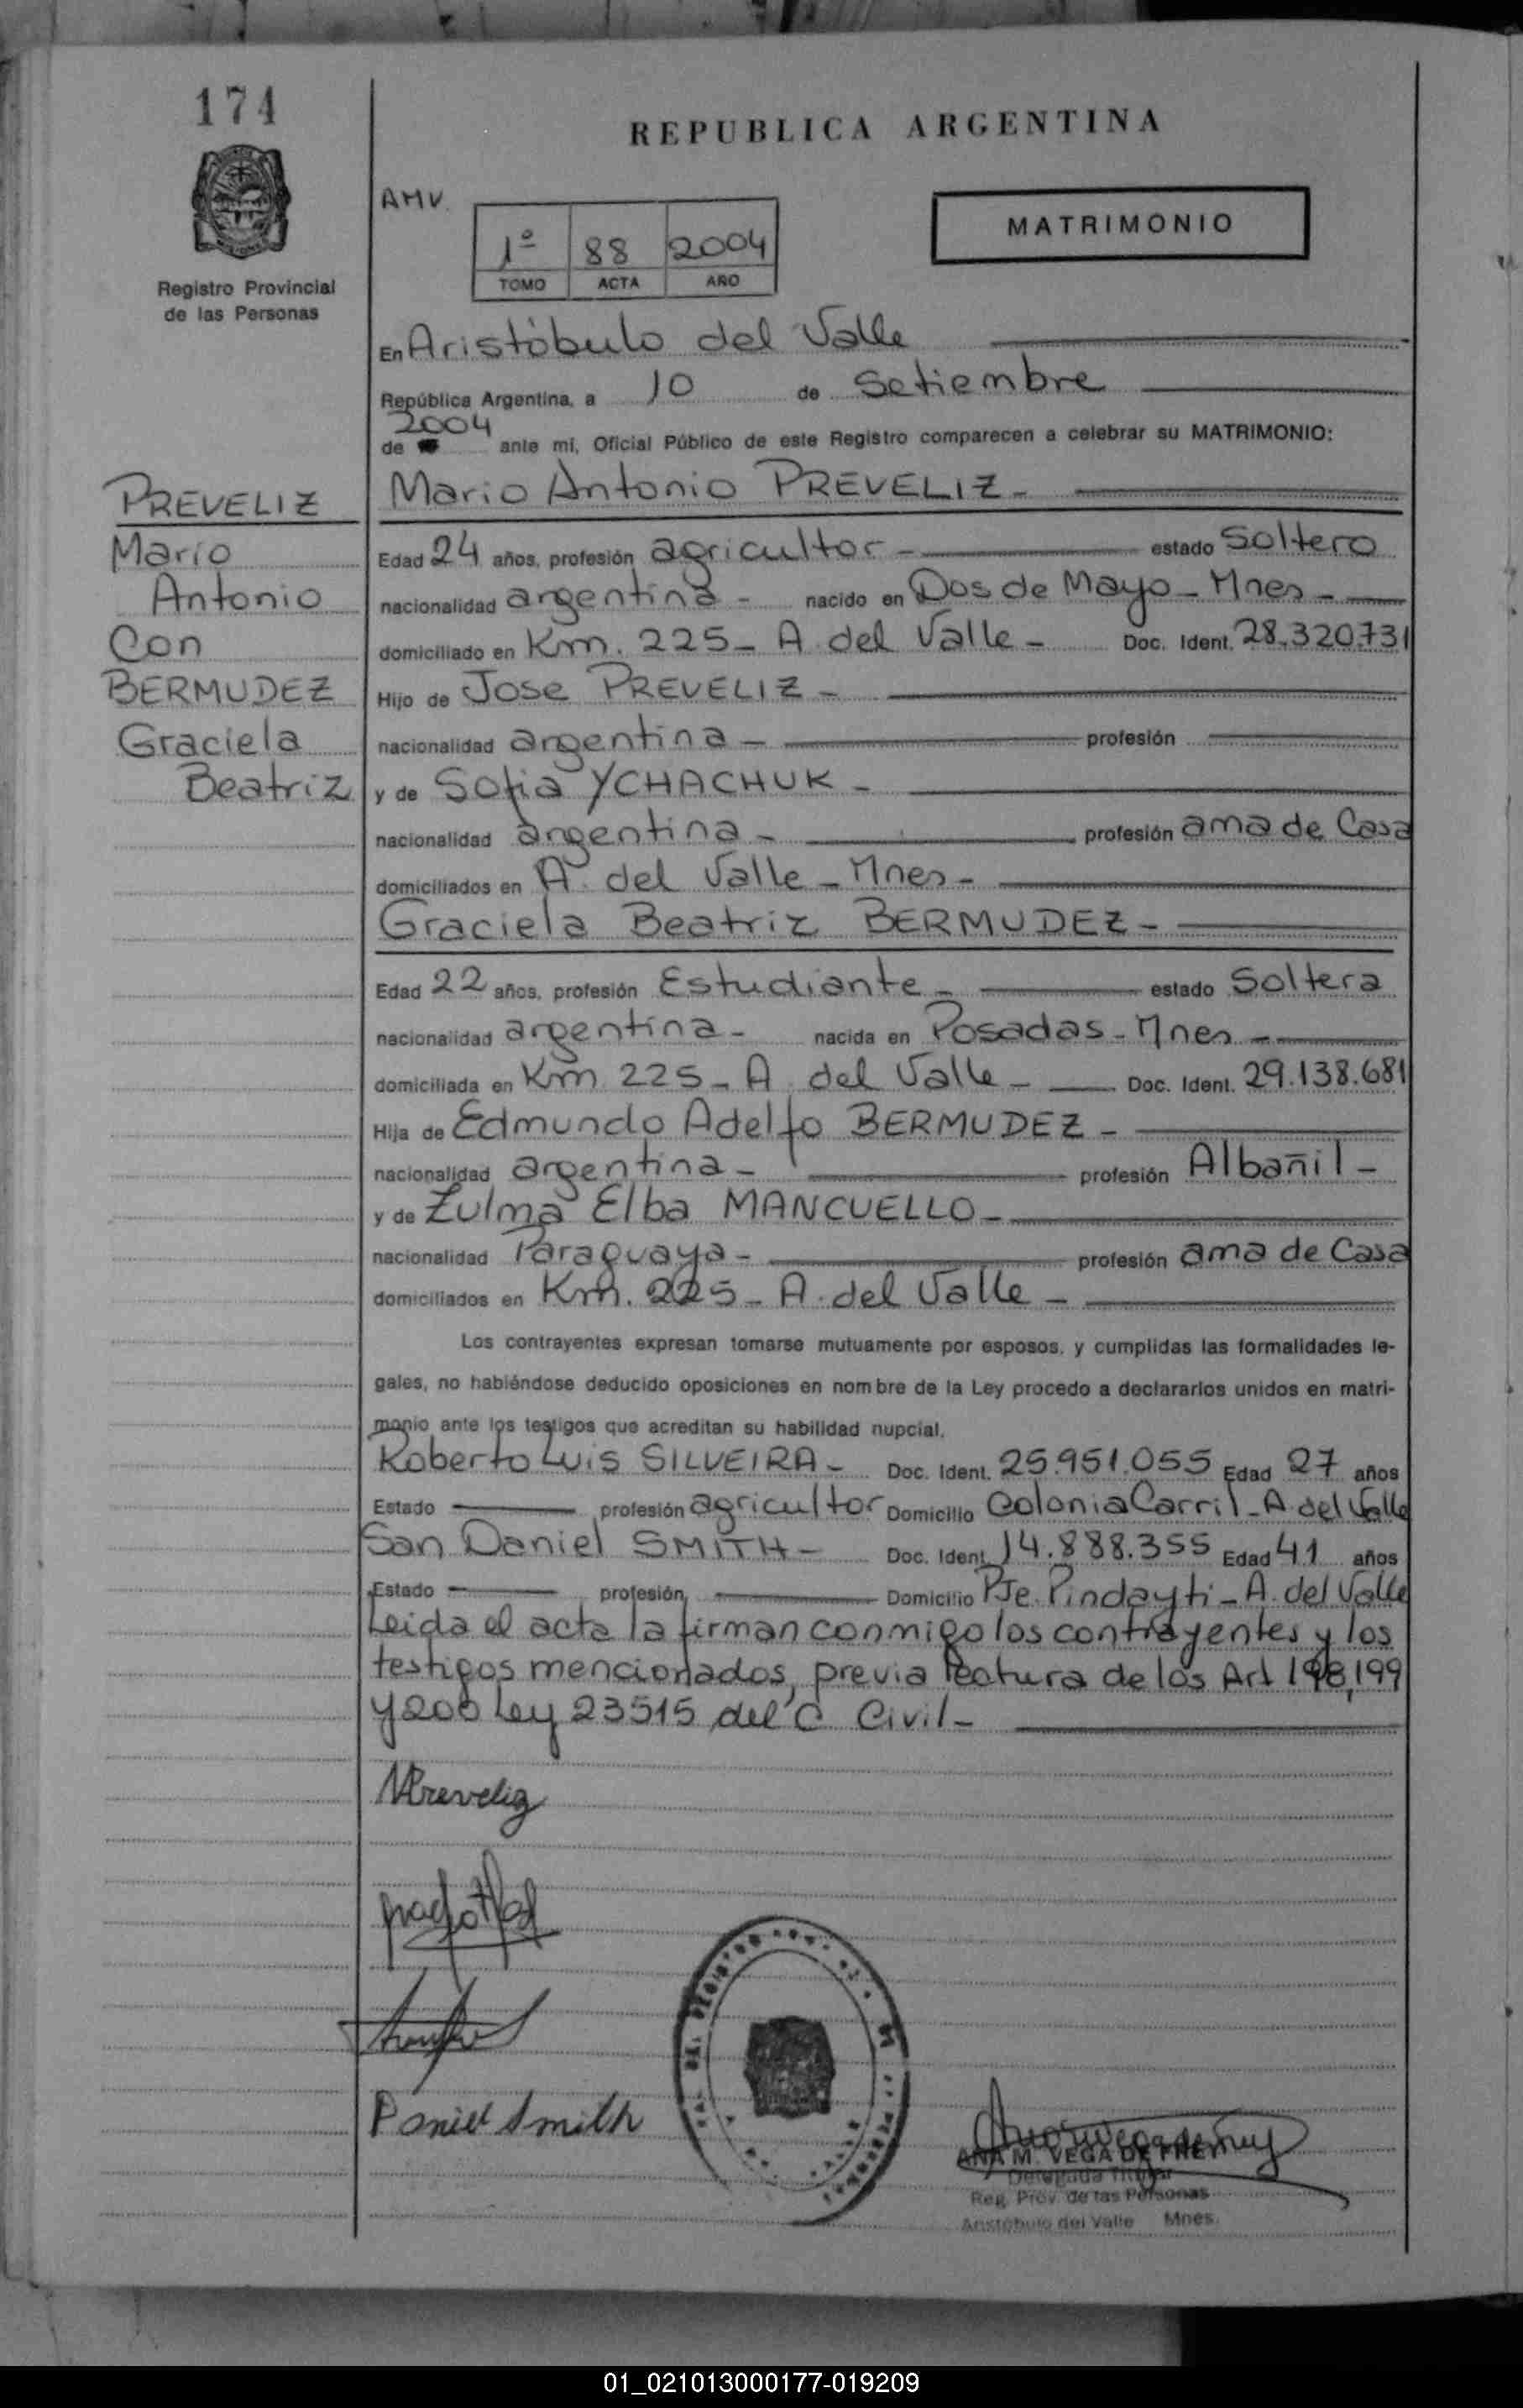 174
REPUBLICA ARGENTINA
AMV.
1º 88 2004
TOMO ACTA AÑO
MATRIMONIO
Registro Provincial
de las Personas
En Aristóbulo del Valle
República Argentina, a 10 de Setiembre
de 2004 ante mi, Oficial Público de este Registro comparecen a celebrar su MATRIMONIO:
PREVELIZ
Mario
Antonio
Con
BERMUDEZ
Graciela
Beatriz
Mario Antonio PREVELIZ -
Edad 24 años, profesión agricultor - estado Soltero
nacionalidad argentina - nacido en Dos de Mayo - Mnes -
domiciliado en Km. 225 - A. del Valle - Doc. Ident. 28.320.731
Hijo de Jose PREVELIZ -
nacionalidad argentina - profesión
y de Sofia YCHACHUK -
nacionalidad argentina - profesión ama de Casa
domiciliados en A. del Valle - Mnes -
Graciela Beatriz BERMUDEZ -
Edad 22 años, profesión Estudiante - estado Soltera
nacionalidad argentina - nacida en Posadas - Mnes -
domiciliada en Km 225 - A. del Valle - Doc. Ident. 29.138.681
Hija de Edmundo Adelfo BERMUDEZ -
nacionalidad argentina - profesión Albañil -
y de Zulma Elba MANCUELLO -
nacionalidad Paraguaya - profesión ama de Casa
domiciliados en Km. 225 - A. del Valle -
Los contrayentes expresan tomarse mutuamente por esposos, y cumplidas las formalidades le-
gales, no habiéndose deducido oposiciones en nombre de la Ley procedo a declararlos unidos en matri-
monio ante los testigos que acreditan su habilidad nupcial.
Roberto Luis SILVEIRA - Doc. Ident. 25.951.055 Edad 27 años
Estado profesión agricultor Domicilio Colonia Carril - A. del Valle
San Daniel SMITH - Doc. Ident. 14.888.355 Edad 41 años
Estado profesión Domicilio Pje. Pindayti - A. del Valle
Leida el acta la firman conmigo los contrayentes y los
testigos mencionados, previa lectura de los Art 198, 199
y 200 Ley 23515 del C. Civil -
MPreveliz
Daniel Smith
ANA M. VEGA DE FREY
Delegada Titular
Reg. Prov. de las Personas
Aristóbulo del Valle Mnes.
01_021013000177-019209